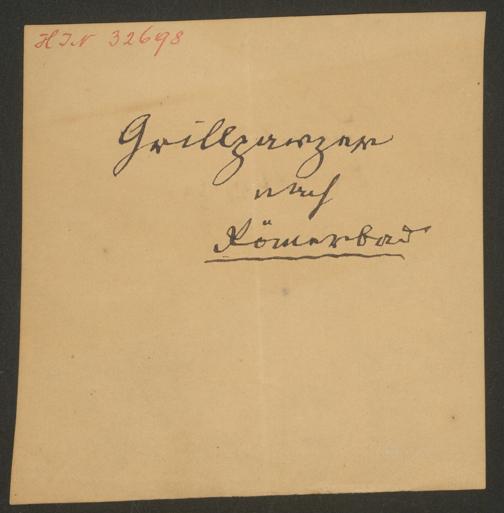 HIN 32698
Grillparzer
nach
Römerbad